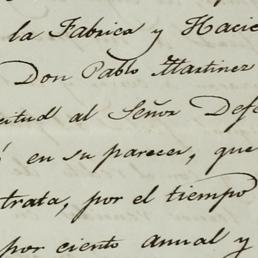 la Fabrica y Hacie
Don Pablo Martinez
citud al Señor Defe
en su parecer, que
trata, por el tiempo
por ciento anual y